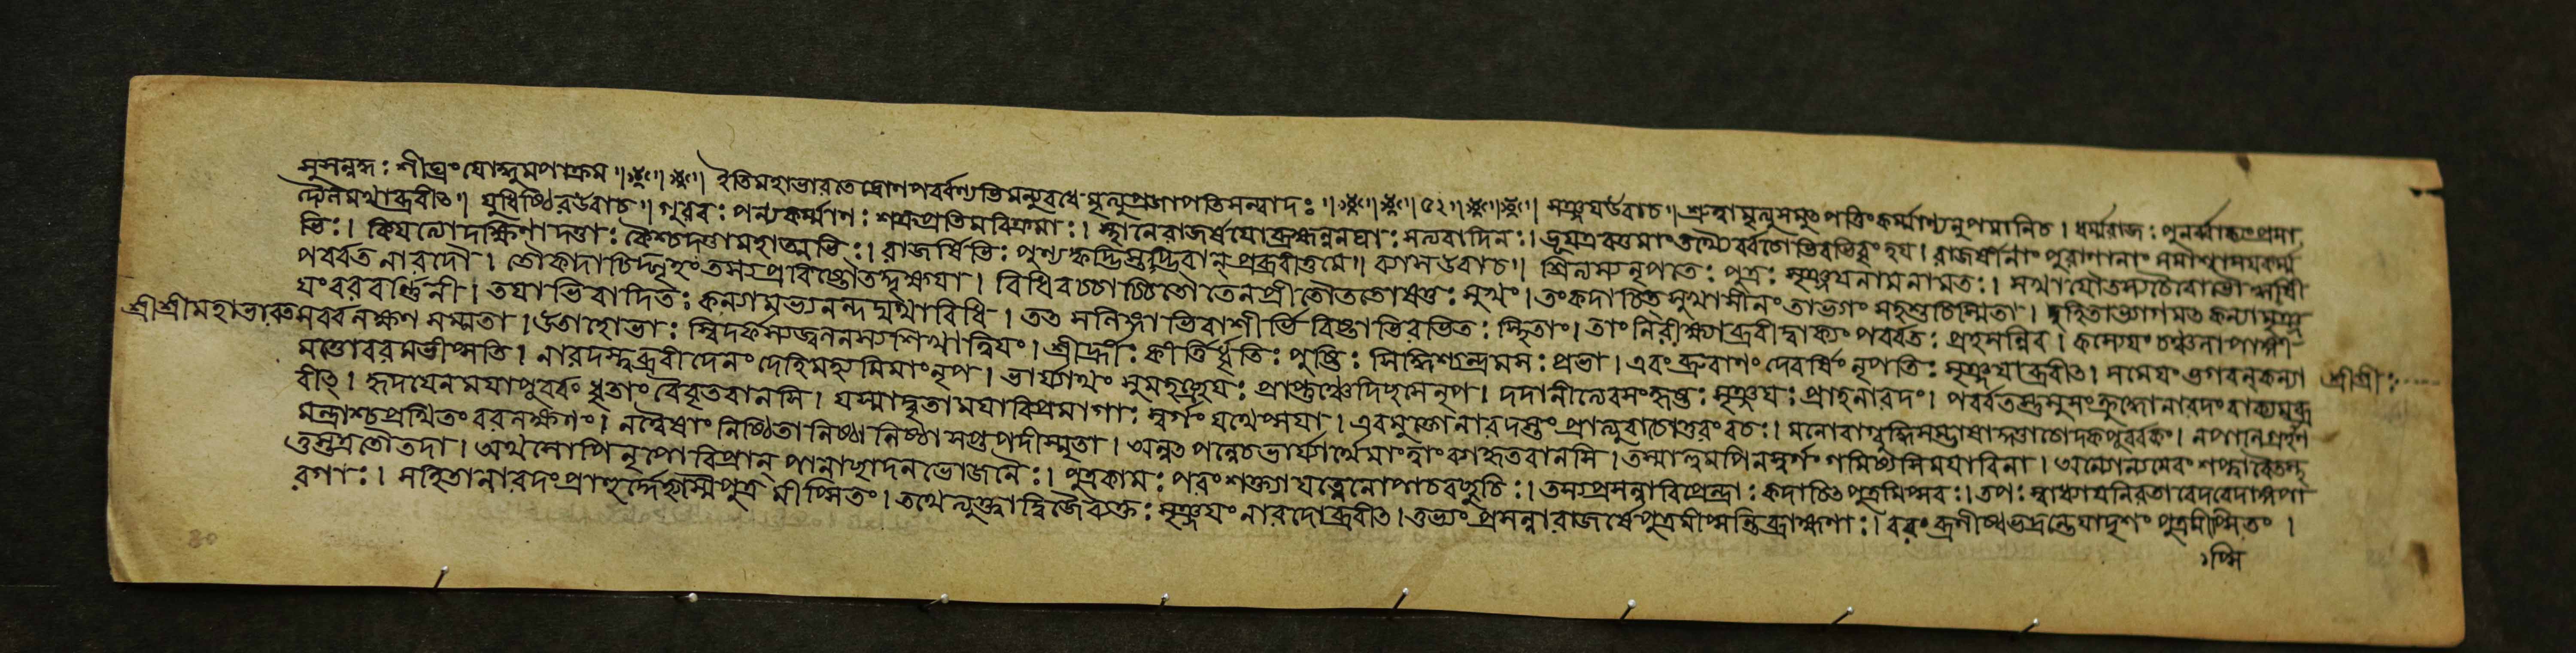 সুসন্নদ্ধঃ শীঘ্রং যোদ্ধুমপাক্রম ॥ ইতিমহাভারতেদ্রোণপর্ব্বণ্যভিমন্যুবধে মৃত্যুপ্রজাপতিসম্বাদঃ ॥ ৫২ ॥ সঞ্জয়উবাচ ॥ শ্রুত্বামৃত্যুসমুৎপত্তিং কর্ম্মাণ্যনুপমানিচ । ধর্ম্মরাজঃ পুনর্ব্বাক্যং প্রসা
দ্যৈনমথাব্রবীৎ ॥ যুধিষ্ঠিরউবাচ ॥ গুরবঃ পুণ্যকর্ম্মাণঃ শক্রপ্রতিমবিক্রমাঃ । স্থানেরাজর্ষযোব্রহ্মন্ননঘাঃ সত্যবাদিনঃ । ভূযএবতুমাংতথ্যৈর্ব্বচোভিরভিবৃংহয । রাজর্ষীনাং পুরাণানাং সমাশ্বাসযকর্ম্ম
ভিঃ । কিযত্যোদক্ষিণাদত্তাঃ কৈশ্চদত্তামহাত্মভিঃ । রাজর্ষিভিঃ পুণ্যকৃদ্ভিস্তদ্ভবান্ প্রব্রবীতুমে ॥ ব্যাসউবাচ ॥ শ্বিত্যস্যনৃপতেঃ পুত্রঃ সৃঞ্জযনামনামতঃ । সখাযৌতস্যচৈবোভৌঋষী
পর্ব্বতনারদৌ । তৌকদাচিদ্গৃহংতস্যপ্রবিষ্টৌতদ্দিদৃক্ষযা । বিধিবচ্চার্চ্চিতৌতেনপ্রীতৌতত্রোষতুঃ সুখং । তংকদাচিৎ সুখাসীনং তাভ্যাং সহশুচিস্মিতা । দুহিতাভ্যাগমৎ কন্যাসৃঞ্জ
যংবরবর্ণ্ণিনী । তযাভিবাদিতঃ কন্যামভ্যনন্দদ্যথাবিধি । তৎ সলিঙ্গাভিরাশীর্ভিরিষ্টাভিরভিতঃ স্থিতাং । তাং নিরীক্ষ্যাব্রবীদ্বাক্যং পর্ব্বতঃ প্রহসন্নিব । কস্যেযং চঞ্চলাপাঙ্গী
শ্রীশ্রীমহাভারত সর্ব্বলক্ষণসম্মতা । উতাহোভাঃ স্বিদর্কস্যজ্বলনস্যশিখাত্বিযং । শ্রীর্হ্রীঃ কীর্ত্তির্ধৃতিঃ পুষ্টিঃ সিদ্ধিশ্চন্দ্রমসঃ প্রভা । এবং ব্রুবাণং দেবর্ষিং নৃপতিঃ সৃঞ্জযোব্রবীৎ । মমেযং ভগবন্ কন্যা শ্রীশ্রীঃ
মত্তোবরমভীপ্সতি । নারদস্ত্বব্রবীদেনং দেহিমহ্যমিমাংনৃপ । ভার্য্যার্থং সুমহচ্ছ্রেযঃ প্রাপ্তুঞ্চেদিচ্ছসেনৃপ । দদানীত্যেবসংহৃষ্টঃ সৃঞ্জযঃ প্রাহনারদং । পর্ব্বতস্তুসুসংক্রুদ্ধোনারদং বাক্যমব্র
বীৎ । হৃদযেনমযাপূর্ব্বং ধৃতাং বৈবৃতবানসি । যস্মাদ্বৃতামযাবিপ্রমাগাঃ স্বর্গং যথেপ্সযা । এবমুক্তোনারদস্তং প্রত্যুবাচোত্তরংবচঃ । মনোবাগ্বুদ্ধিসম্ভাষাদত্তাচোদকপূর্ব্বকং । নপাণিগ্রহণ
মন্ত্রাশ্চপ্রথিতং বরলক্ষণং । নত্বেষাং নিষ্ঠিতানিষ্ঠা নিষ্ঠাসপ্তপদীস্মৃতা । অনুৎপন্নেচভার্য্যার্থেমাংত্বাং ব্যাহৃতবানসি । তস্মাত্ত্বমপিনস্বর্গং গমিষ্যসিমযাবিনা । অন্যোন্যমেবং শপ্ত্বাবৈতস্থ
তুস্তত্রতৌতদা । অথসোপিনৃপোবিপ্রান্ পানাচ্ছাদনভোজনৈঃ । পুত্রকামঃ পরংশক্ত্যাযত্নেনোপাচরচ্ছুচিঃ । তস্যপ্রসন্নাবিপ্রেন্দ্রাঃ কদাচিৎ পুত্রমিপ্সবঃ । তপঃ স্বাধ্যাযনিরতাবেদবেদাঙ্গপা
রগাঃ । সহিতানারদংপ্রাহুর্দ্দেহ্যস্মৈপুত্রমীপ্সিতং । তথেত্যুক্ত্বাদ্বিজৈরুক্তঃ সৃঞ্জযং নারদোব্রবীৎ । তুভ্যং প্রসন্নারাজর্ষেপুত্রমীপ্সন্তিব্রাহ্মণাঃ । বরং বৃণীষ্বভদ্রন্তেযাদৃশং পুত্রমীপ্সিতং ।
প্সি